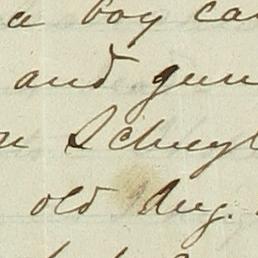 a boy ca
and gun
n Schuyl
old Aug.